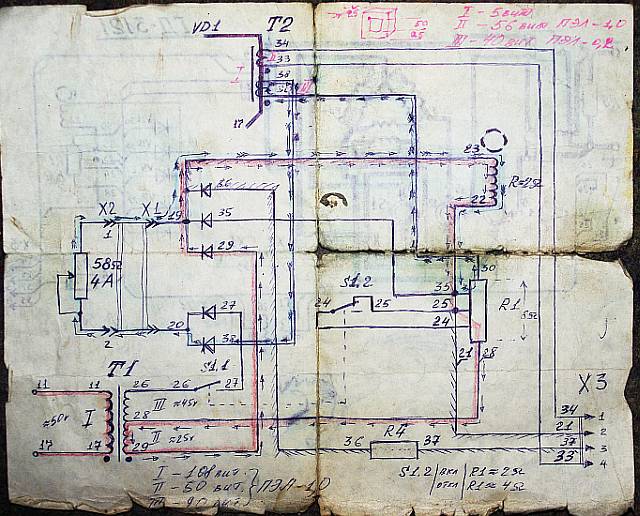 VD1
T2
I - 5 вит.
II - 56 вит. ПЭЛ-1,0
III - 40 вит. ПЭЛ-0,2
50
25
34
33
II
I
38
III
17
23
22
R=2Ω
36
35
29
19
X2
X1
1
58Ω
4A
2
20
27
38
S1.1
S1.2
24
25
35
25
24
30
R1
5Ω
21
28
X3
T1
11
11
≈50V
I
17
17
26
26
27
III ≈45V
28
II ≈25V
29
36
R4
37
34
1
21
2
37
3
33
4
S1.2
ВКЛ
R1=2Ω
ОТКЛ
R1=4Ω
II - 50 вит.
ПЭЛ-1,0